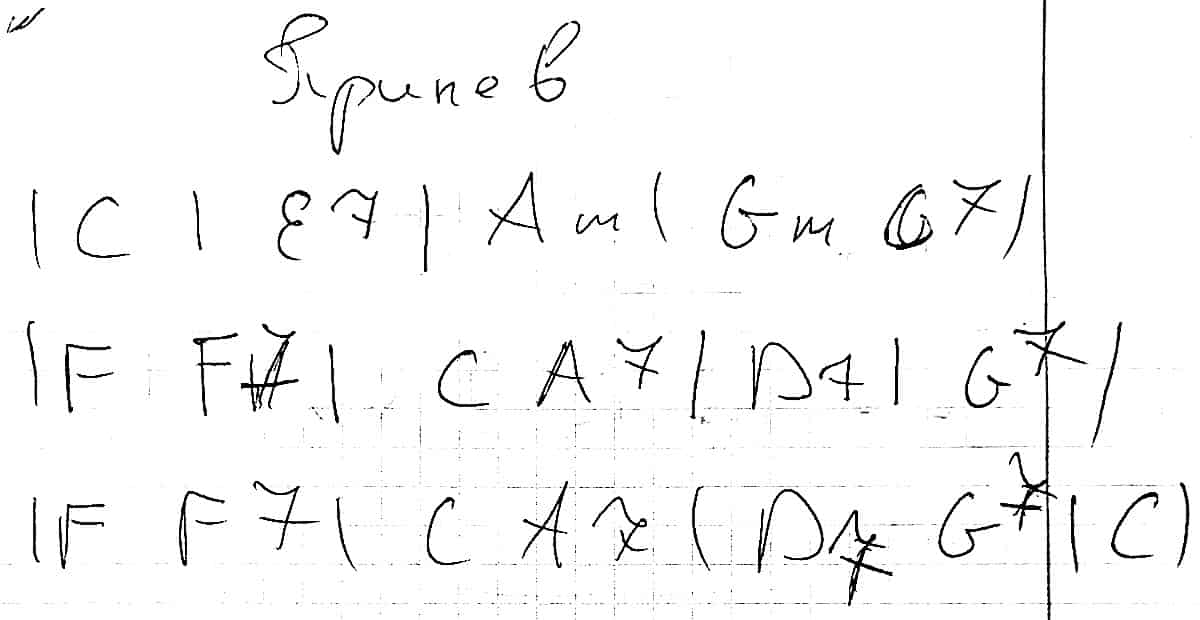 Припев
| C | E7 | Am | Gm C7 |
| F F7 | C A7 | D7 | G7 |
| F F7 | C A7 | D7 G7 | C |